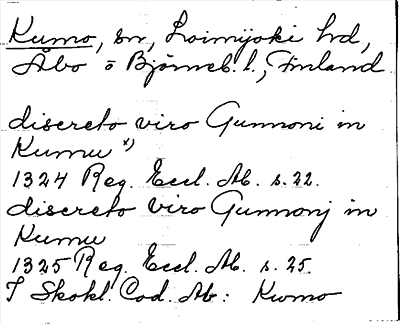 Kumo, sn, Loimijoki hd,
Åbo o Björneb. l., Finland
discreto viro Gunnoni in
Kumu *)
1324 Reg. Eccl. Ab. s. 22.
discreto viro Gunnonj in
Kumu
1325 Reg. Eccl. Ab. s. 25.
I Skokl. Cod. Ab: Kwmo